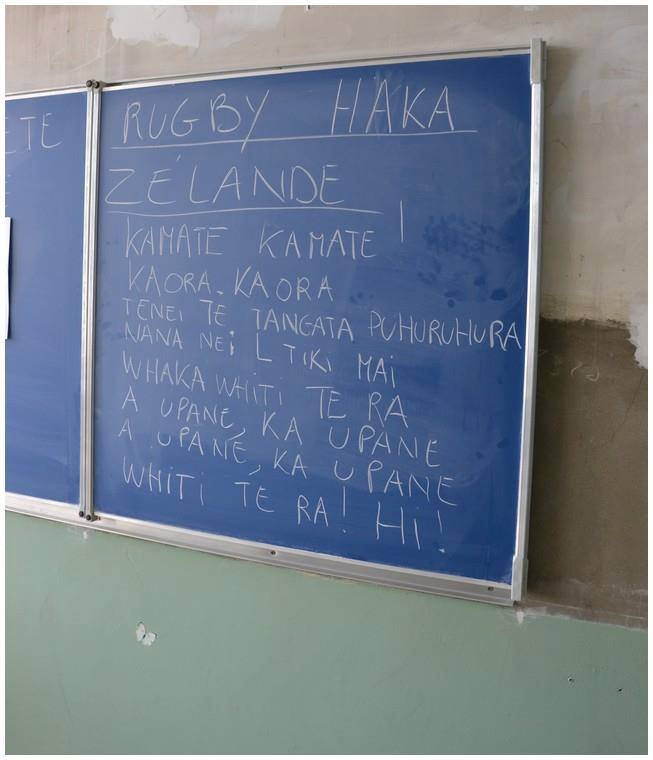 ETE
RUGBY HAKA
ZÉLANDE
KAMATE KAMATE !
KAORA. KAORA
TENEI TE TANGATA PUHURUHURA
NANA NEI L TIKI MAI
WHAKA WHITI TE RA
A UPANE, KA UPANE
A UPANE, KA UPANE
WHITI TE RA! Hi!